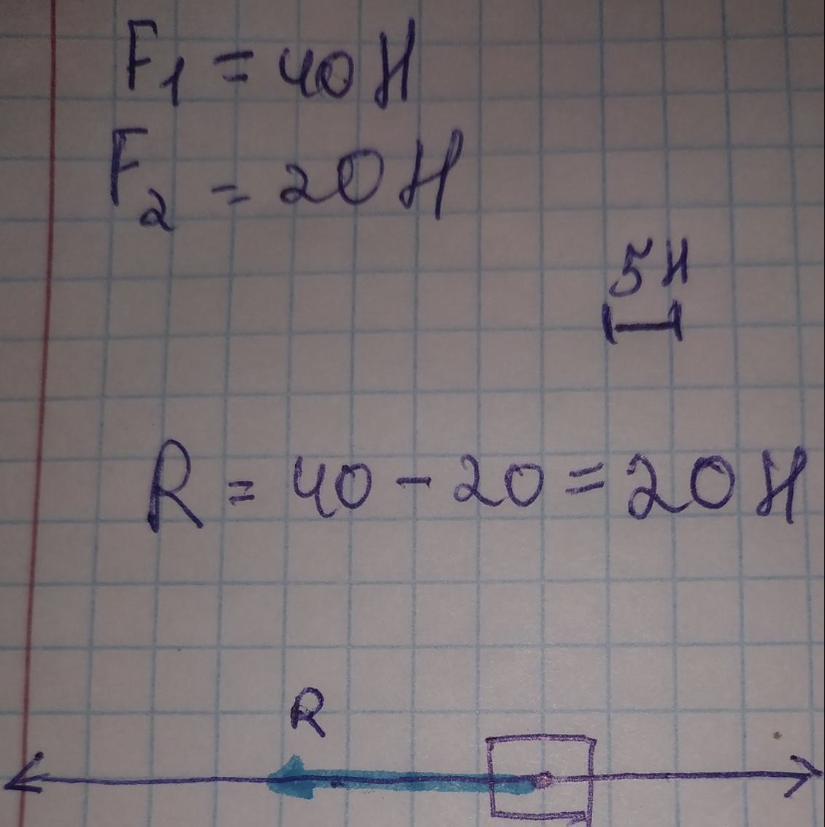 F₁ = 40 Н
F₂ = 20 Н
5 Н
R = 40 - 20 = 20 Н
R